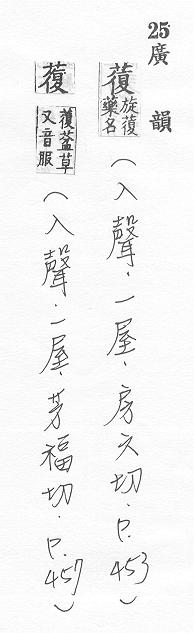 25廣韻
蕧 旋蕧藥名（入聲．一屋．房六切．P.453）
蕧 蕧葐草又音服（入聲．一屋．芳福切．P.457）